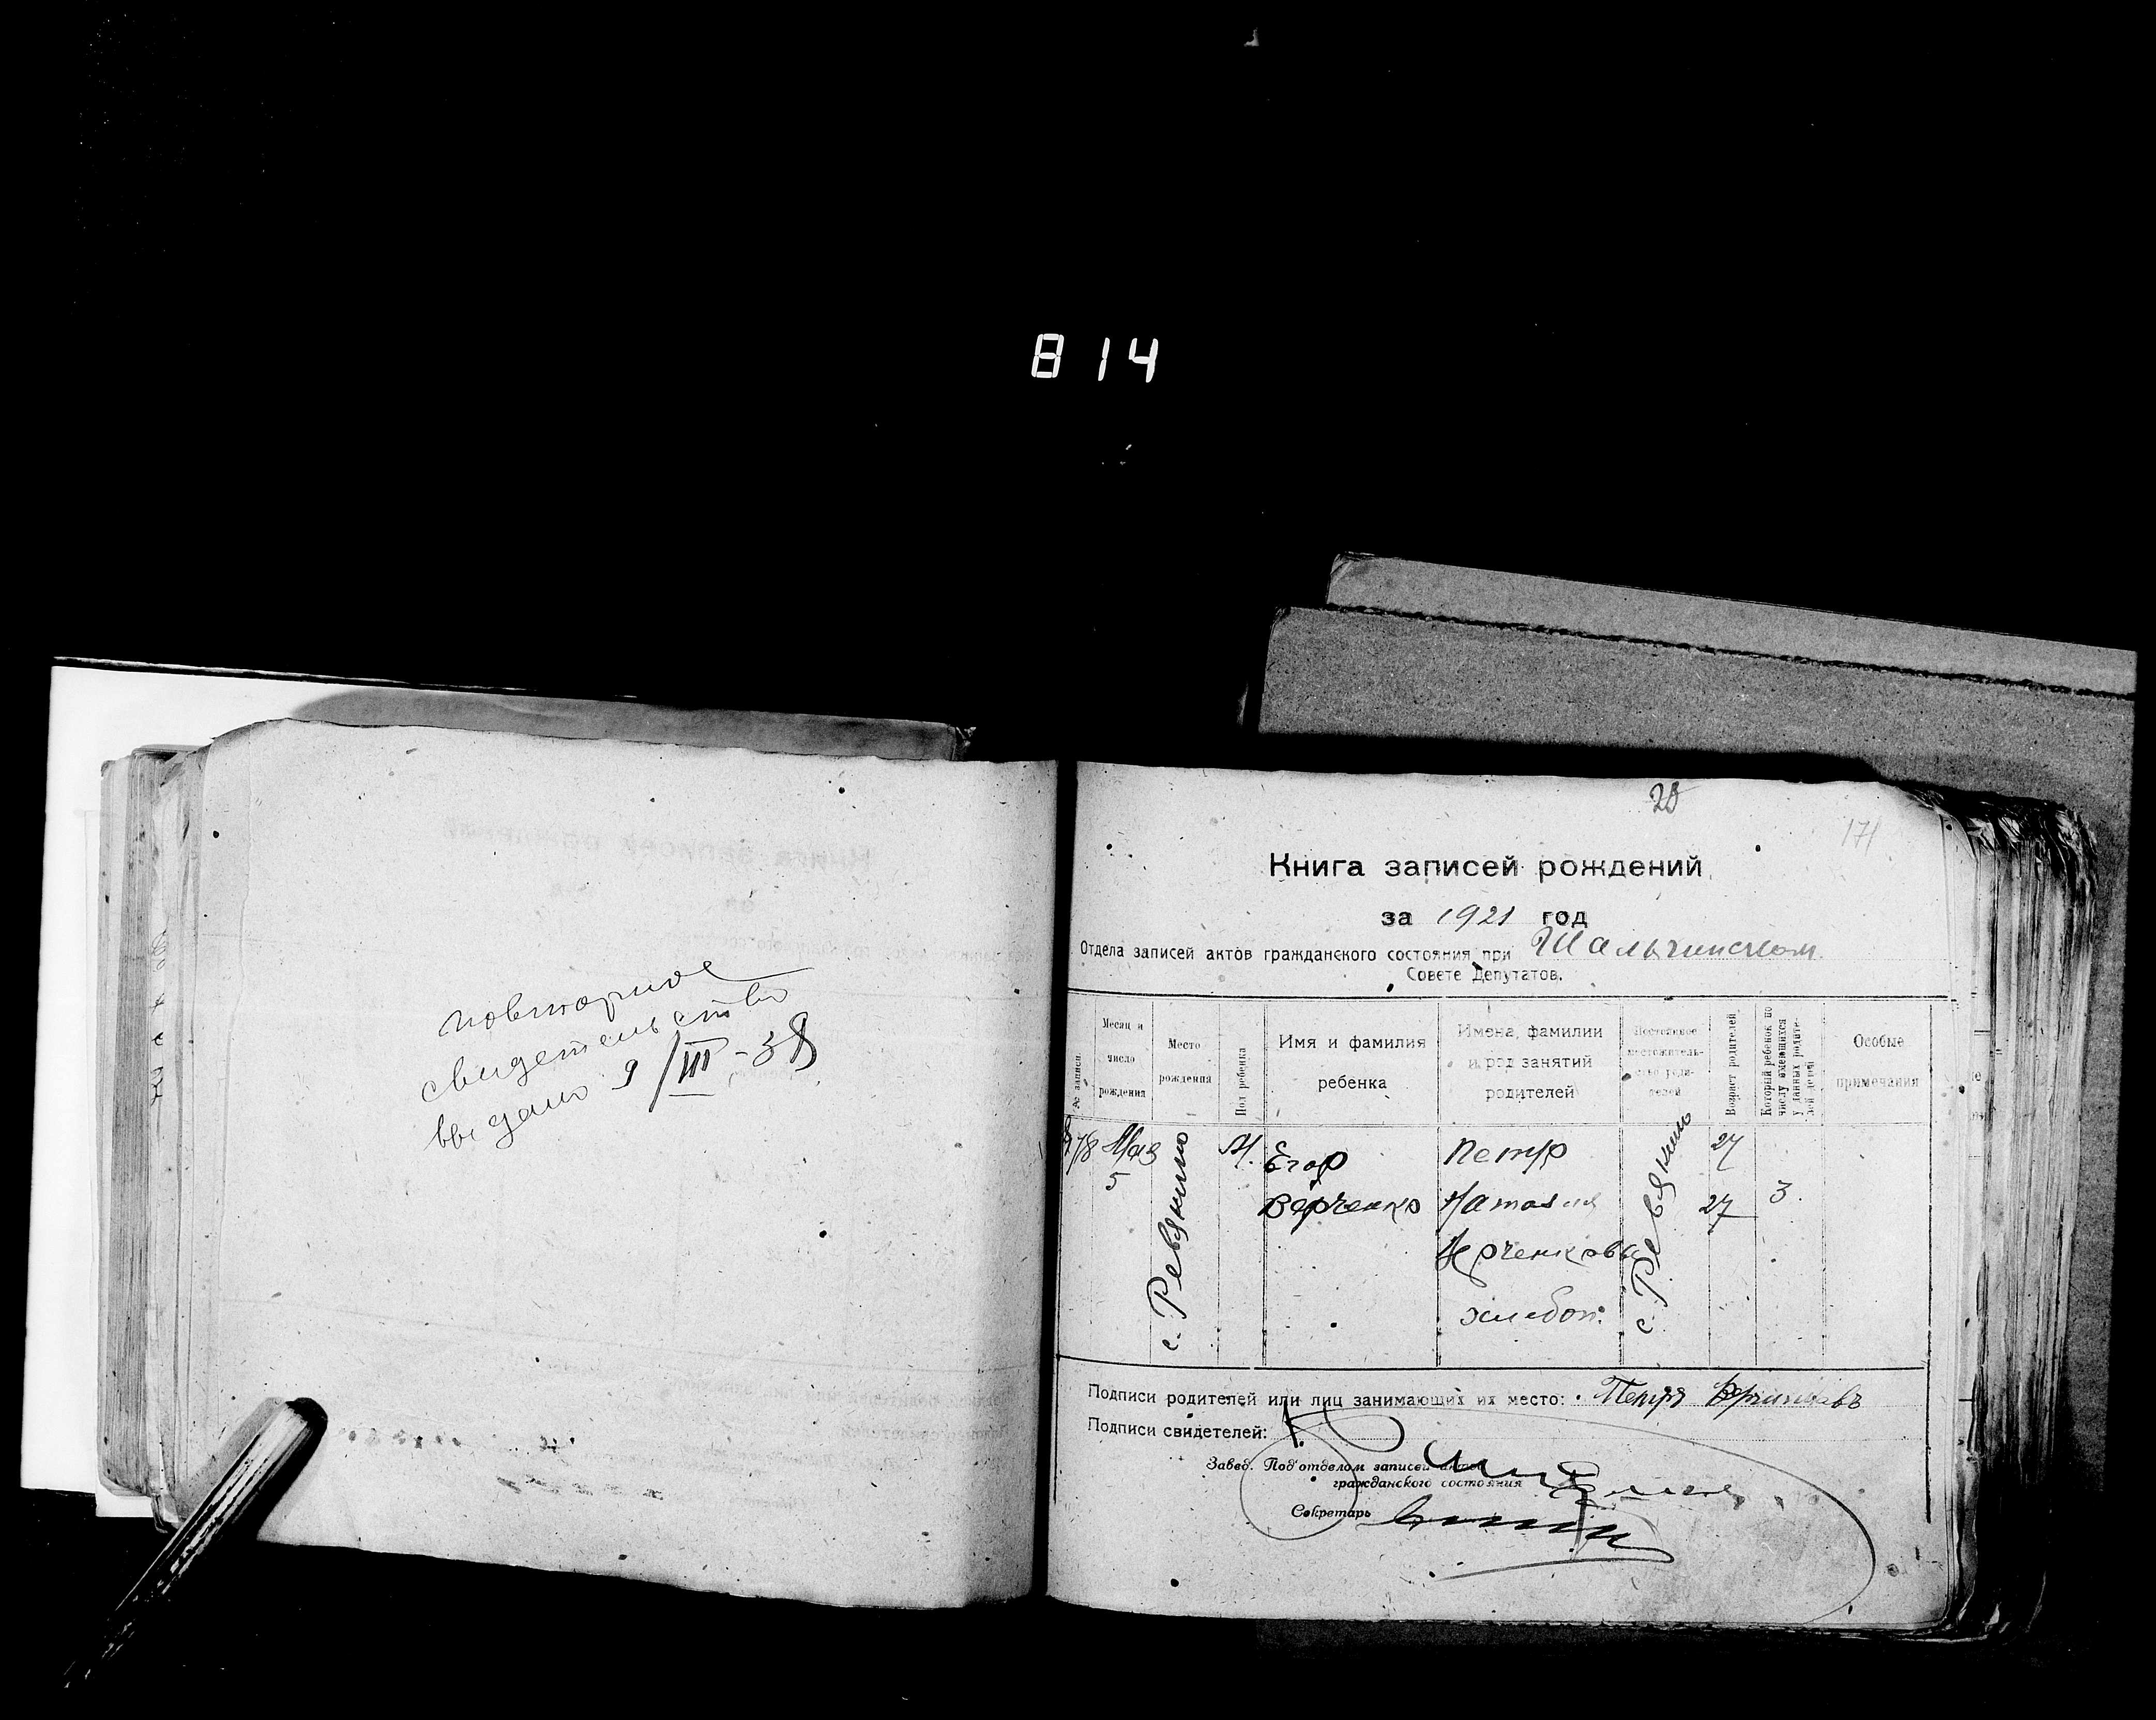 814
повторное
свидетельство
выдано 9/III-38
20
171
Книга записей рождений
за 1921 год
Отдела записей актов гражданского состояния при Шальчинском
Совете Депутатов.
№ записи.
Месяц и число рождения
Место рождения
Пол ребенка
Имя и фамилия ребенка
Имена, фамилии и род занятий родителей
Постоянное местожительство родителей
Возраст родителей
Который ребенок по числу имеющихся у данных родителей детей
Особые примечания
Мая 5
с. Ревякино
М.
Егор
Верченко
Петр
Наталия
Верченковы
хлебоп.
с. Ревякино
27
27
3.
Подписи родителей или лиц занимающих их место: Петръ
Подписи свидетелей:
Завед. Подотделом записей актов
гражданского состояния
Секретарь